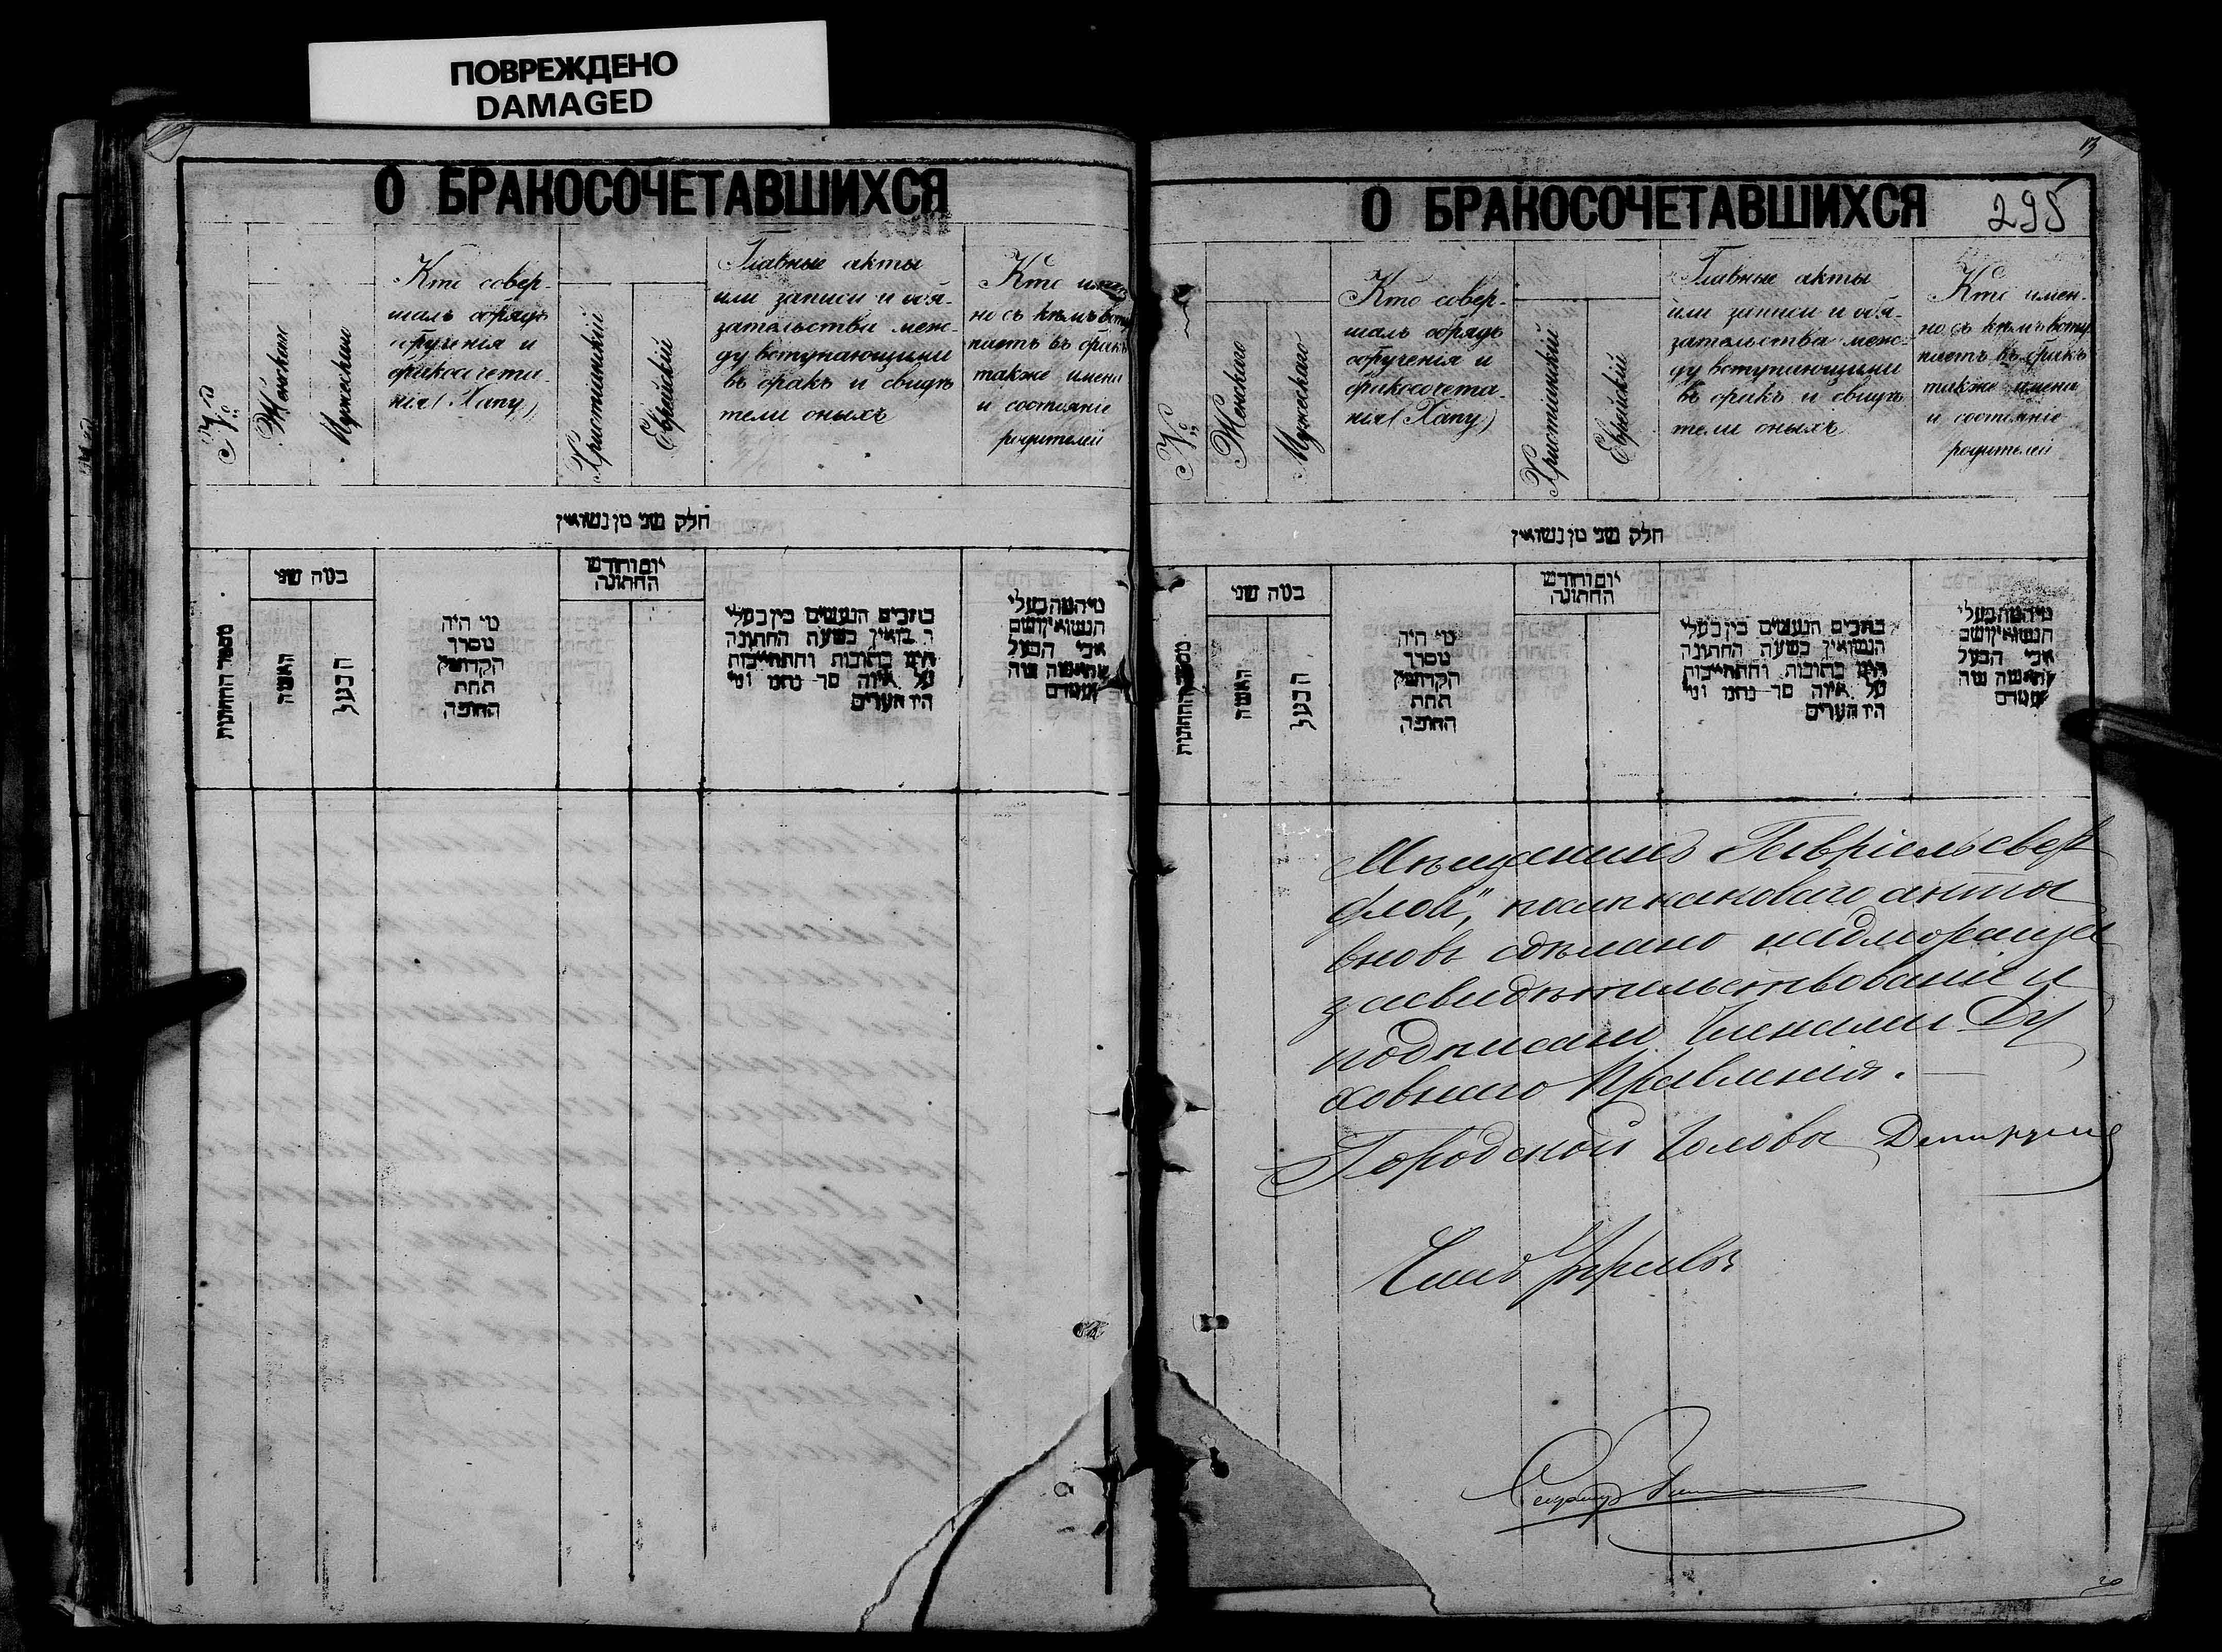 ПОВРЕЖДЕНО
DAMAGED
О БРАКОСОЧЕТАВШИХСЯ
№
Женскаго
Мужескаго
Кто совер-
шалъ обрядъ
обрученія и
бракосочета-
нія (Хапу)
Христіянскій
Еврейскій
Главные акты
или записи и обя-
зательства меж-
ду вступающими
въ бракъ и свидѣ
тели оныхъ
Кто имен
но съ кѣмъ всту
паетъ въ бракъ
также имена
и состояніе
родителей
חלק שני מן נשואין
מספר החתונות
כמה שני
האשה
הבעל
מי היה
מסדר
הקדושין
תחת
החופה
יום וחודש
החתונה
כתבים הנעשים בין בעלי
בשעת החתונה
כתובות והתחייבות
על איזה סך נתנו ומי
היו העדים
מי המה בעלי
הנשואין ושם
אבי הבעל
והאשה ומה
מעמדם
13
О БРАКОСОЧЕТАВШИХСЯ 295
№
Женскаго
Мужескаго
Кто совер-
шалъ обрядъ
обрученія и
бракосочета-
нія (Хапу)
Христіянскій
Еврейскій
Главные акты
или записи и обя-
зательства меж-
ду вступающими
въ бракъ и свидѣ
тели оныхъ
Кто имен-
но съ кѣмъ всту
паетъ въ бракъ
также имена
и состояніе
родителей
חלק שני מן נשואין
מספר החתונות
כמה שני
האשה
הבעל
מי היה
מסדר
הקדושין
תחת
החופה
יום וחודש
החתונה
כתבים הנעשים בין בעלי
הנשואין בשעת החתונה
כתובות והתחייבות
על איזה סך נתנו ומי
היו העדים
מי המה בעלי
הנשואין ושם
אבי הבעל
והאשה ומה
מעמדם
Мѣщанинъ Гавріель
каковаго акта
вновь сдѣлано
засвидѣтельствованіе и
подписано Членами Ду
ховнаго Правленія.
Городской Голова
Членъ Управы
Секретарь
20